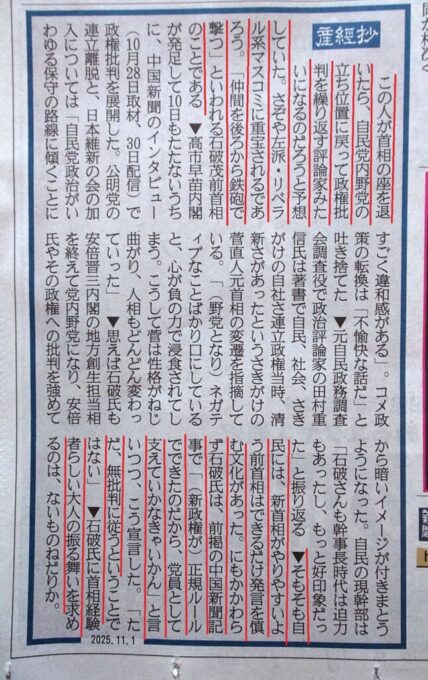 産経抄
この人が首相の座を退
いたら、自民党内野党の
立ち位置に戻って政権批
判を繰り返す評論家みた
いになるのだろうと予想
していた。さぞや左派・リベラ
ル系マスコミに重宝されるであ
ろう。「仲間を後ろから鉄砲で
撃つ」といわれる石破茂前首相
のことである▼高市早苗内閣
が発足して10日もたたないうち
に、中国新聞のインタビュー
(10月28日取材、30日配信)で
政権批判を展開した。公明党の
連立離脱と、日本維新の会の加
入については「自民党政治がい
わゆる保守の路線に傾くことに
すごく違和感がある」。コメ政
策の転換は「不愉快な話だ」と
吐き捨てた▼元自民政務調査
会調査役で政治評論家の田村重
信氏は著書で自民、社会、さき
がけの自社さ連立政権当時、清
新さがあったというさきがけの
菅直人元首相の変遷を指摘して
いる。「(野党となり)ネガテ
ィブなことばかり口にしている
と、心が負の力で浸食されてし
まう。こうして菅は性格がねじ
曲がり、人相もどんどん変わっ
ていった」▼思えば石破氏も
安倍晋三内閣の地方創生担当相
を終えて党内野党になり、安倍
氏やその政権への批判を強めて
から暗いイメージが付きまとう
ようになった。自民の現幹部は
「石破さんも幹事長時代は迫力
もあったし、もっと好印象だっ
た」と振り返る▼そもそも自
民には、新首相がやりやすいよ
う前首相はできるだけ発言を慎
む文化があった。にもかかわら
ず石破氏は、前掲の中国新聞記
事で「(新政権が)正規ルール
でできたのだから、党員として
支えていかなきゃいかん」と言
いつつ、こう宣言した。「た
だ、無批判に従うということで
はない」▼石破氏に首相経験
者らしい大人の振る舞いを求め
るのは、ないものねだりか。
2025.11.1